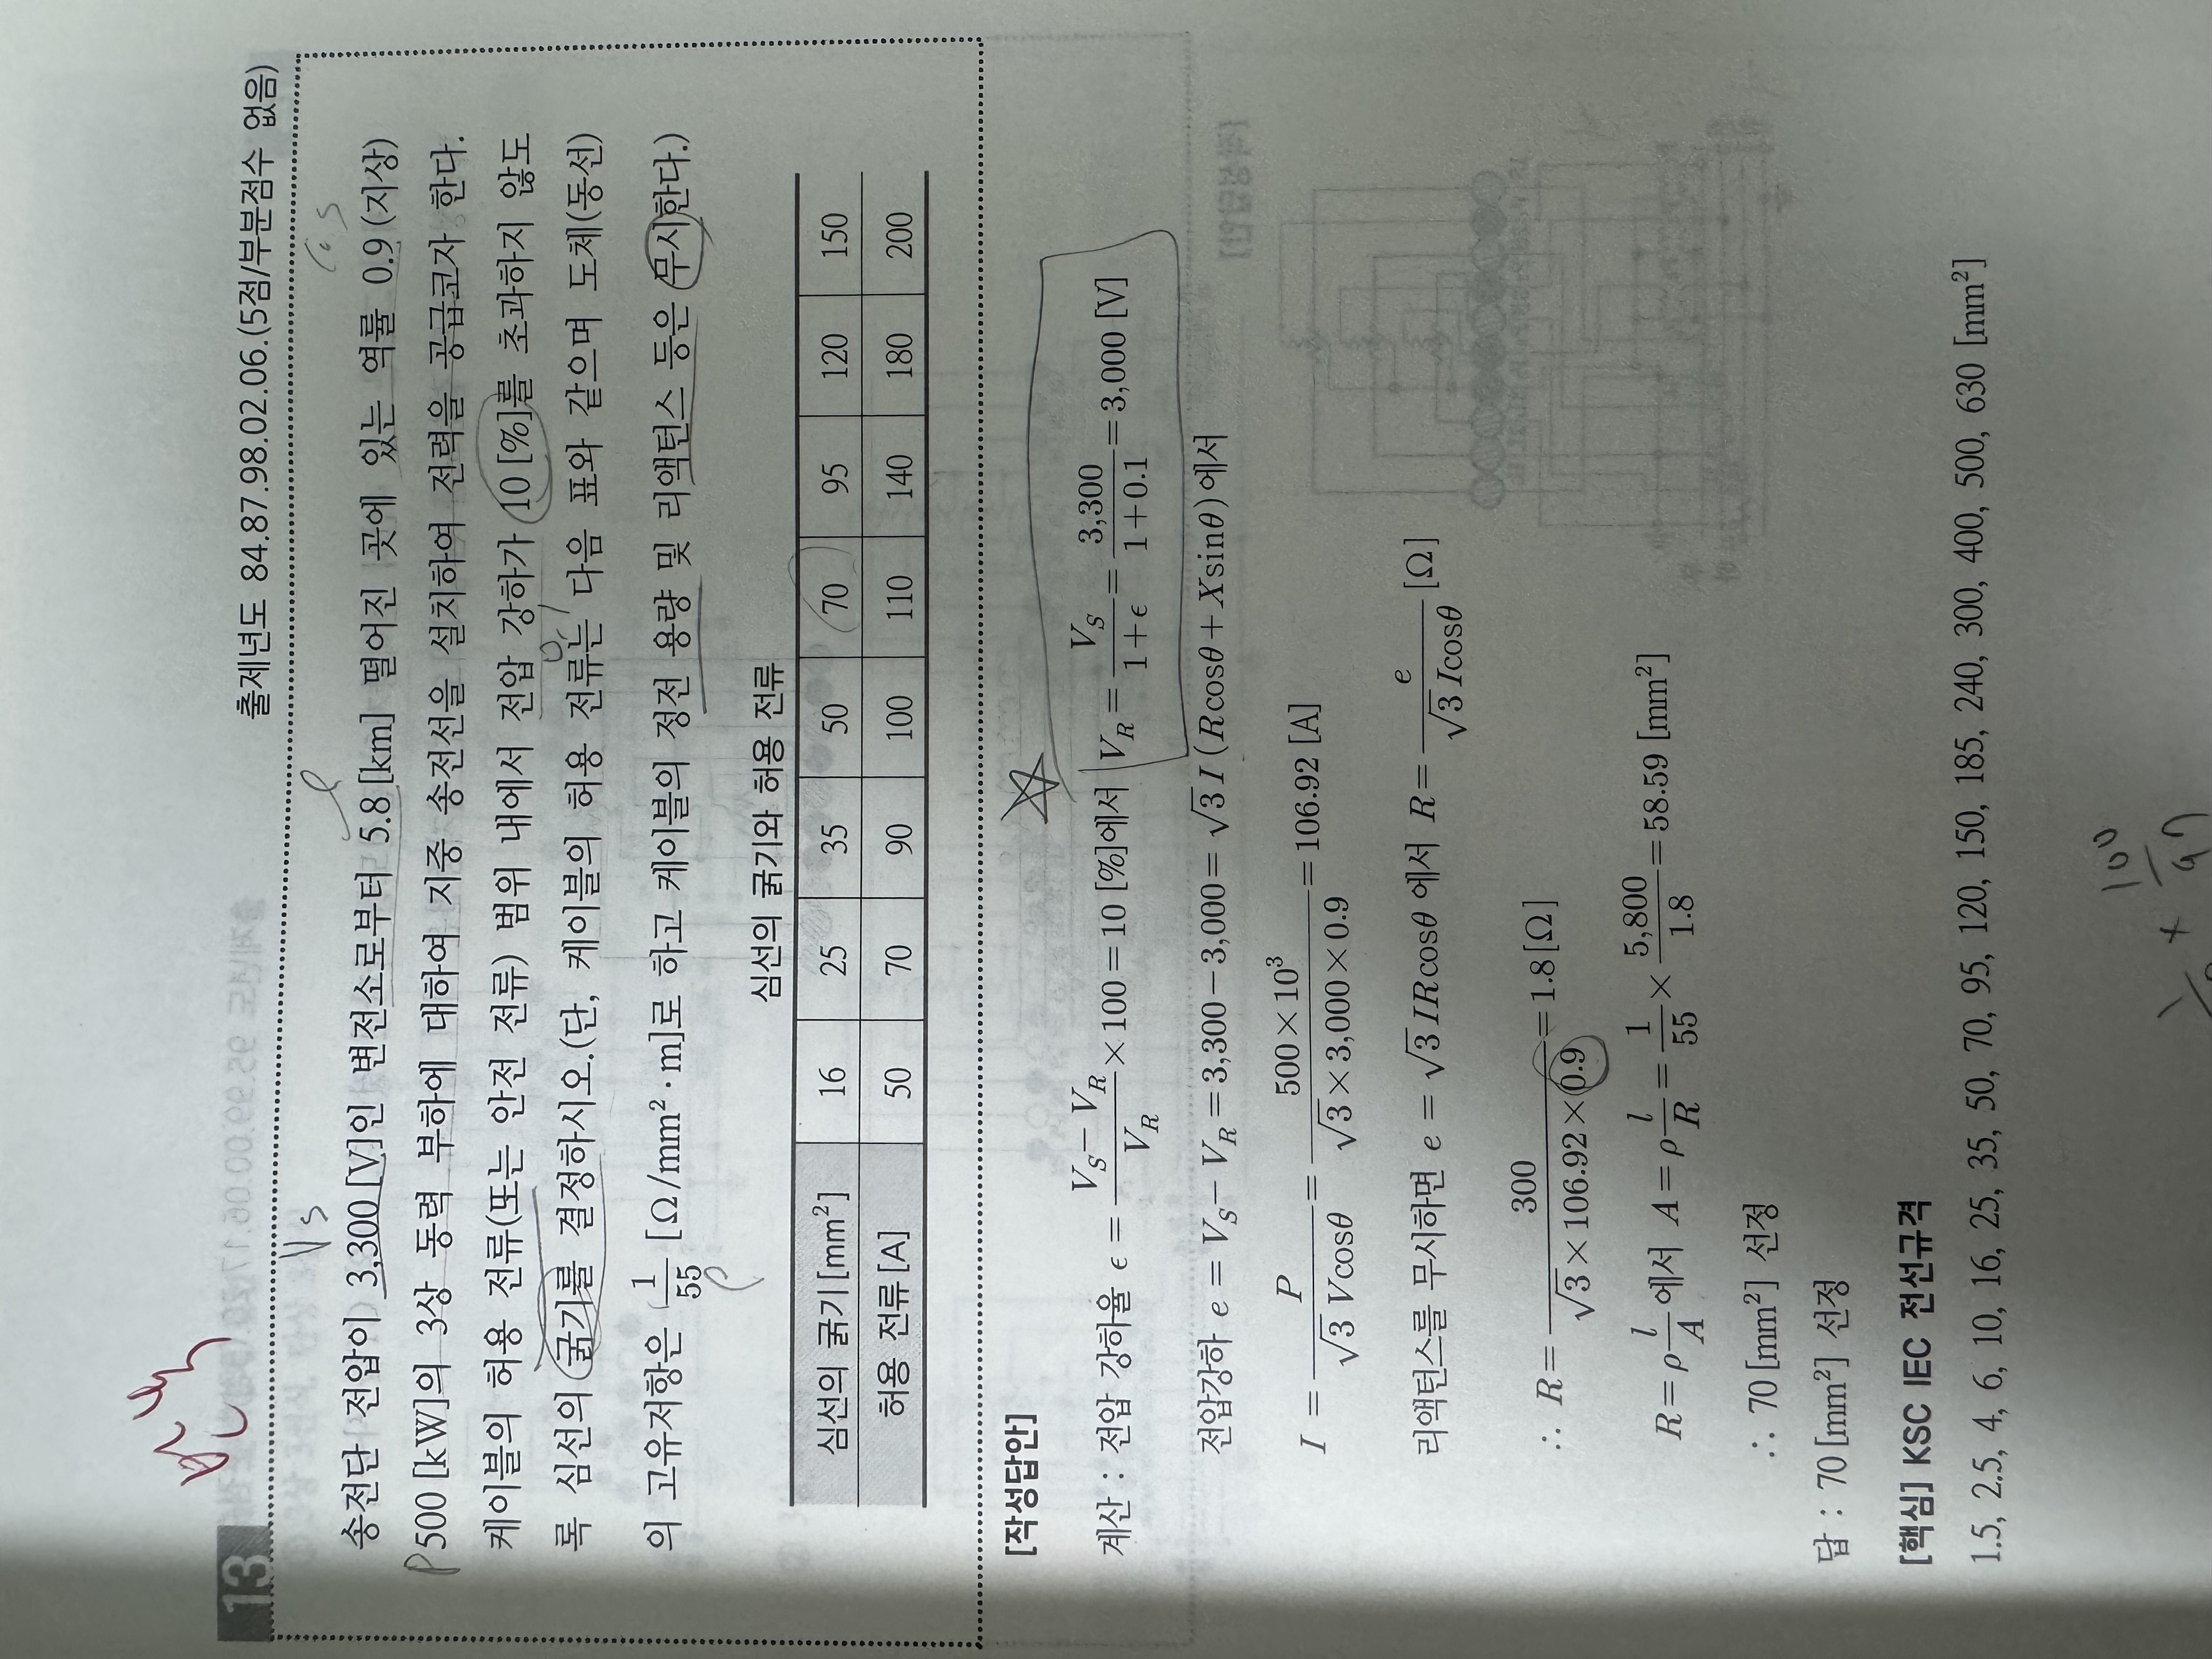 13
출제년도 84.87.98.02.06.(5점/부분점수 없음)
송전단 전압이 3,300 [V]인 변전소로부터 5.8 [km] 떨어진 곳에 있는 역률 0.9 (지상)
500 [kW]의 3상 동력 부하에 대하여 지중 송전선을 설치하여 전력을 공급코자 한다.
케이블의 허용 전류(또는 안전 전류) 범위 내에서 전압 강하가 10 [%]를 초과하지 않도
록 심선의 굵기를 결정하시오.(단, 케이블의 허용 전류는 다음 표와 같으며 도체(동선)
의 고유저항은 1/55 [Ω/mm²·m]로 하고 케이블의 정전 용량 및 리액턴스 등은 무시한다.)
심선의 굵기와 허용 전류
심선의 굵기[mm²] 16 25 35 50 70 95 120 150
허용 전류[A] 50 70 90 100 110 140 180 200
[작성답안]
계산 : 전압 강하율 ϵ = (V_S − V_R)/V_R × 100 = 10 [%]에서 V_R = V_S/(1+ϵ) = 3,300/(1+0.1) = 3,000 [V]
전압강하 e = V_S − V_R = 3,300 − 3,000 = √3 I (R cosθ + X sinθ)에서
I = P/(√3 V cosθ) = 500 × 10³/(√3 × 3,000 × 0.9) = 106.92 [A]
리액턴스를 무시하면 e = √3 IR cosθ 에서 R = e/(√3 I cosθ) [Ω]
∴ R = 300/(√3 × 106.92 × 0.9) = 1.8 [Ω]
R = ρ l/A 에서 A = ρ l/R = 1/55 × 5,800/1.8 = 58.59 [mm²]
∴ 70 [mm²] 선정
답 : 70 [mm²] 선정
[핵심] KSC IEC 전선규격
1.5, 2.5, 4, 6, 10, 16, 25, 35, 50, 70, 95, 120, 150, 185, 240, 300, 400, 500, 630 [mm²]